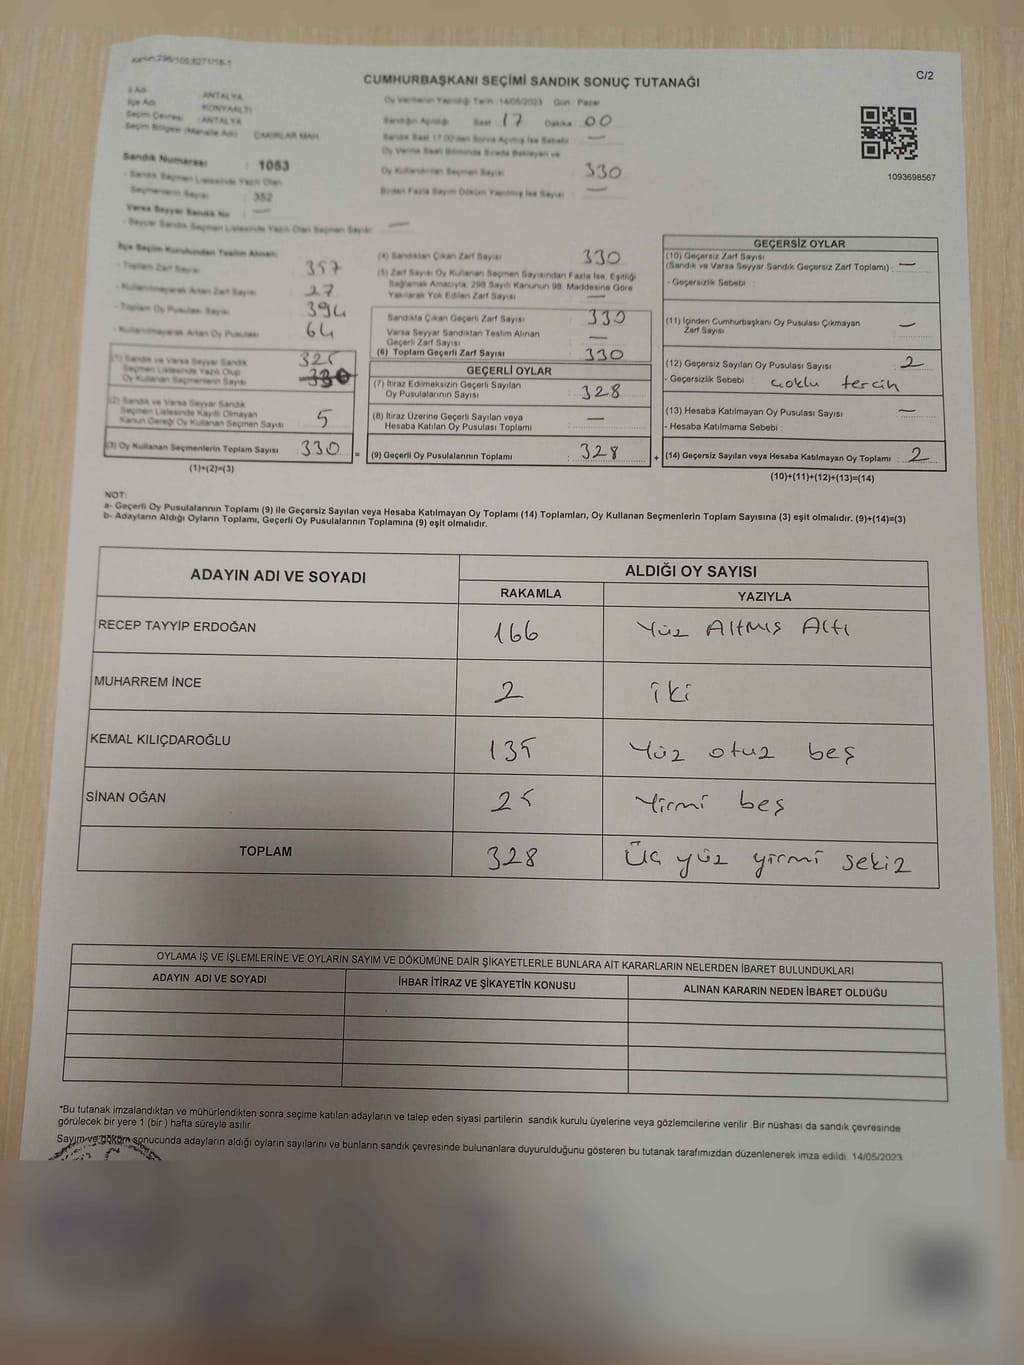 Kanun:298/105;6271/18-1
C/2
CUMHURBAŞKANI SEÇİMİ SANDIK SONUÇ TUTANAĞI
İl Adı : ANTALYA
İlçe Adı : KONYAALTI
Seçim Çevresi : ANTALYA
Seçim Bölgesi (Mahalle Adı) : ÇAKIRLAR MAH.
Sandık Numarası : 1053
- Sandık Seçmen Listesinde Yazılı Olan
Seçmenlerin Sayısı : 352
Varsa Seyyar Sandık No : —
- Seyyar Sandık Seçmen Listesinde Yazılı Olan Seçmen Sayısı: —
Oy Vermenin Yapıldığı Tarih :14/05/2023 Gün : Pazar
Sandığın Açıldığı Saat : 17 Dakika : 00
Sandık Saat 17:00'den Sonra Açılmış İse Sebebi : —
Oy Verme Saati Bitiminde Sırada Bekleyen ve
Oy Kullandırılan Seçmen Sayısı : 330
Birden Fazla Sayım Döküm Yapılmış İse Sayısı : —
1093698567
İlçe Seçim Kurulundan Teslim Alınan;
- Toplam Zarf Sayısı : 357
- Kullanılmayarak Artan Zarf Sayısı : 27
- Toplam Oy Pusulası Sayısı : 394
- Kullanılmayarak Artan Oy Pusulası : 64
(1) Sandık ve Varsa Seyyar Sandık
Seçmen Listesinde Yazılı Olup
Oy Kullanan Seçmenlerin Sayısı : 325
330
(2) Sandık ve Varsa Seyyar Sandık
Seçmen Listesinde Kayıtlı Olmayan
Kanun Gereği Oy Kullanan Seçmen Sayısı : 5
(3) Oy Kullanan Seçmenlerin Toplam Sayısı : 330
(1)+(2)=(3)
(4) Sandıktan Çıkan Zarf Sayısı : 330
(5) Zarf Sayısı Oy Kullanan Seçmen Sayısından Fazla İse, Eşitliği
Sağlamak Amacıyla, 298 Sayılı Kanunun 98. Maddesine Göre
Yakılarak Yok Edilen Zarf Sayısı : —
Sandıkta Çıkan Geçerli Zarf Sayısı : 330
Varsa Seyyar Sandıktan Teslim Alınan
Geçerli Zarf Sayısı : —
(6) Toplam Geçerli Zarf Sayısı : 330
GEÇERLİ OYLAR
(7) İtiraz Edilmeksizin Geçerli Sayılan
Oy Pusulalarının Sayısı : 328
(8) İtiraz Üzerine Geçerli Sayılan veya
Hesaba Katılan Oy Pusulası Toplamı : —
= (9) Geçerli Oy Pusulalarının Toplamı : 328
GEÇERSİZ OYLAR
(10) Geçersiz Zarf Sayısı
(Sandık ve Varsa Seyyar Sandık Geçersiz Zarf Toplamı) : —
- Geçersizlik Sebebi
(11) İçinden Cumhurbaşkanı Oy Pusulası Çıkmayan
Zarf Sayısı : —
(12) Geçersiz Sayılan Oy Pusulası Sayısı : 2
- Geçersizlik Sebebi : çoklu tercih
(13) Hesaba Katılmayan Oy Pusulası Sayısı : —
- Hesaba Katılmama Sebebi :
+ (14) Geçersiz Sayılan veya Hesaba Katılmayan Oy Toplamı : 2
(10)+(11)+(12)+(13)=(14)
NOT:
a- Geçerli Oy Pusulalarının Toplamı (9) ile Geçersiz Sayılan veya Hesaba Katılmayan Oy Toplamı (14) Toplamları, Oy Kullanan Seçmenlerin Toplam Sayısına (3) eşit olmalıdır. (9)+(14)=(3)
b- Adayların Aldığı Oyların Toplamı, Geçerli Oy Pusulalarının Toplamına (9) eşit olmalıdır.
ADAYIN ADI VE SOYADI ALDIĞI OY SAYISI
RAKAMLA YAZIYLA
RECEP TAYYİP ERDOĞAN 166 Yüz Altmış Altı
MUHARREM İNCE 2 iki
KEMAL KILIÇDAROĞLU 135 Yüz otuz beş
SİNAN OĞAN 25 Yirmi beş
TOPLAM 328 Üç yüz yirmi sekiz
OYLAMA İŞ VE İŞLEMLERİNE VE OYLARIN SAYIM VE DÖKÜMÜNE DAİR ŞİKAYETLERLE BUNLARA AİT KARARLARIN NELERDEN İBARET BULUNDUKLARI
ADAYIN ADI VE SOYADI İHBAR İTİRAZ VE ŞİKAYETİN KONUSU ALINAN KARARIN NEDEN İBARET OLDUĞU
*Bu tutanak imzalandıktan ve mühürlendikten sonra seçime katılan adayların ve talep eden siyasi partilerin sandık kurulu üyelerine veya gözlemcilerine verilir .Bir nüshası da sandık çevresinde
görülecek bir yere 1 (bir ) hafta süreyle asılır.
Sayım ve döküm sonucunda adayların aldığı oyların sayılarını ve bunların sandık çevresinde bulunanlara duyurulduğunu gösteren bu tutanak tarafımızdan düzenlenerek imza edildi. 14/05/2023